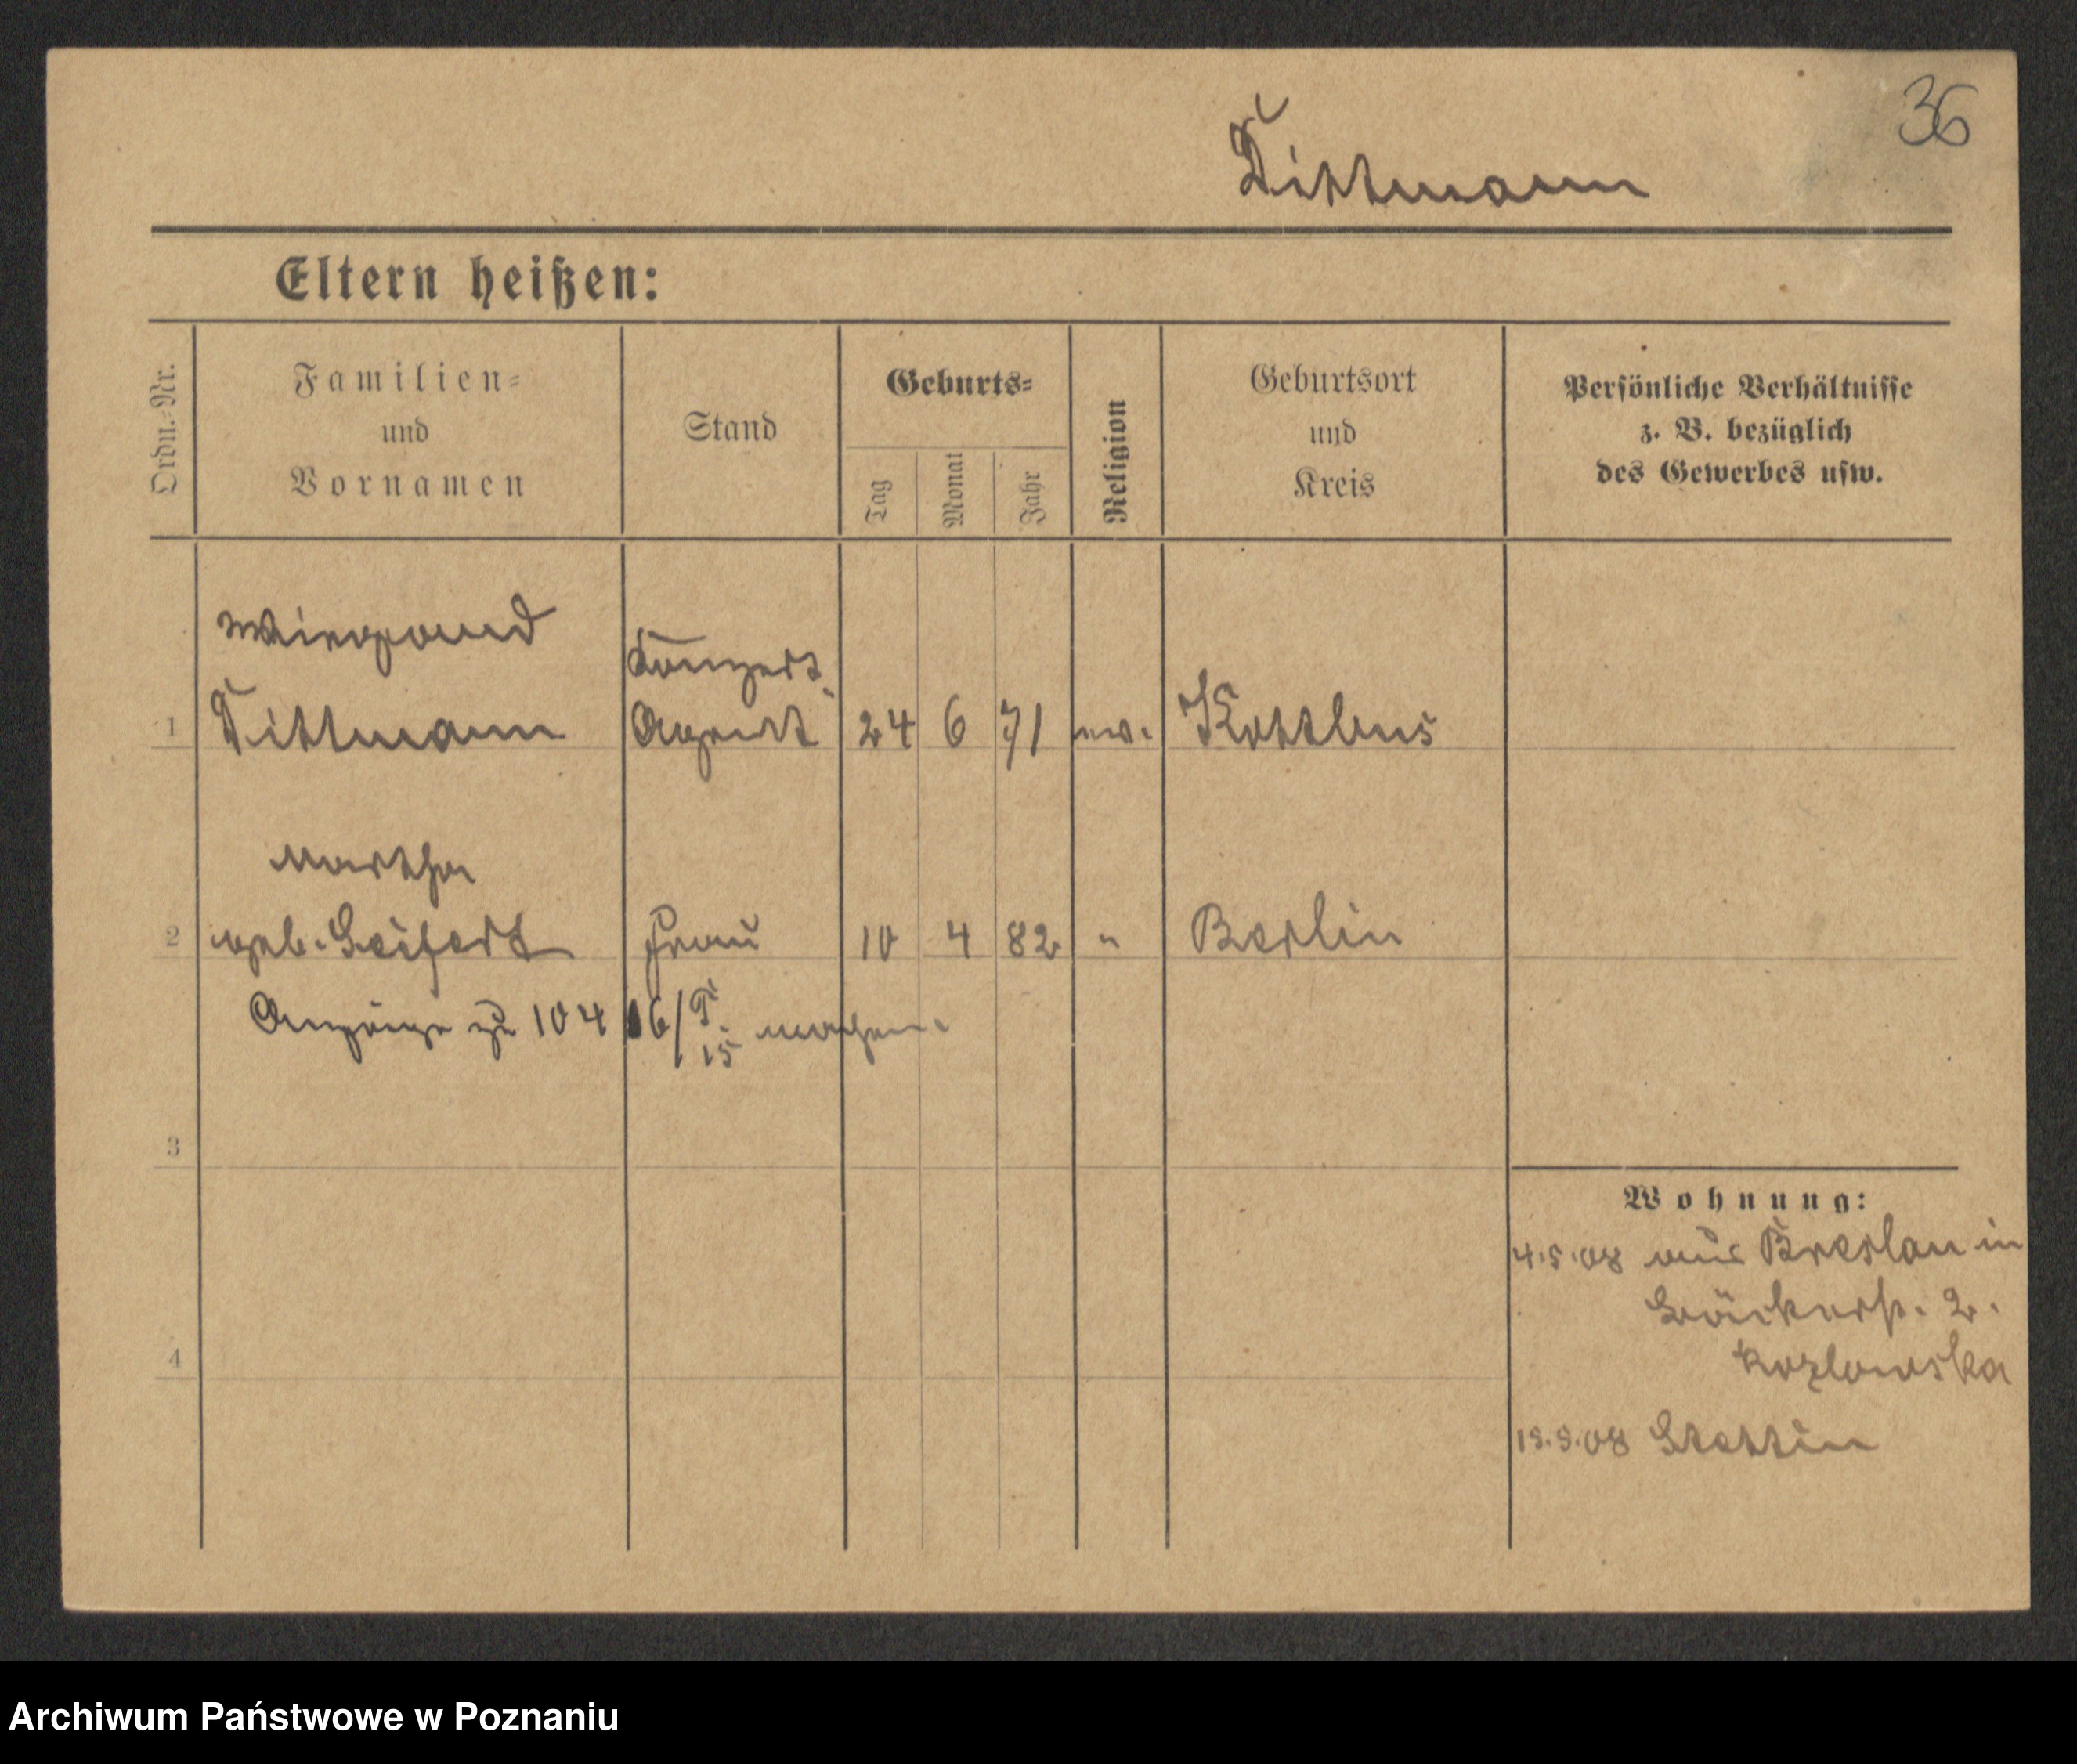 36
Dittmann
Eltern heißen:
Ordn.-Nr.
Familien-
und
Vornamen
Stand
Geburts-
Tag
Monat
Jahr
Religion
Geburtsort
und
Kreis
Persönliche Verhältnisse
z. B. bezüglich
des Gewerbes usw.
Wiegand
Konzert
1 Dittmann Agent 24 6 71 ev. Kottbus
Martha
2 geb. Seifert Frau 10 4 82 " Berlin
Anzeige zu 10416/T. 15 machen.
3
Wohnung:
4.5.08 aus Breslau in
Bäckerstr. 2.
Kozlowska
4
Stettin
Archiwum Państwowe w Poznaniu